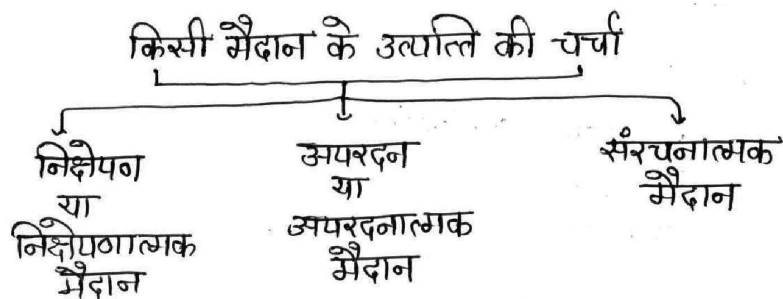 किसी मैदान के उत्पत्ति की चर्चा
निक्षेपण
या
निक्षेपणात्मक
मैदान
अपरदन
या
अपरदनात्मक
मैदान
संरचनात्मक
मैदान